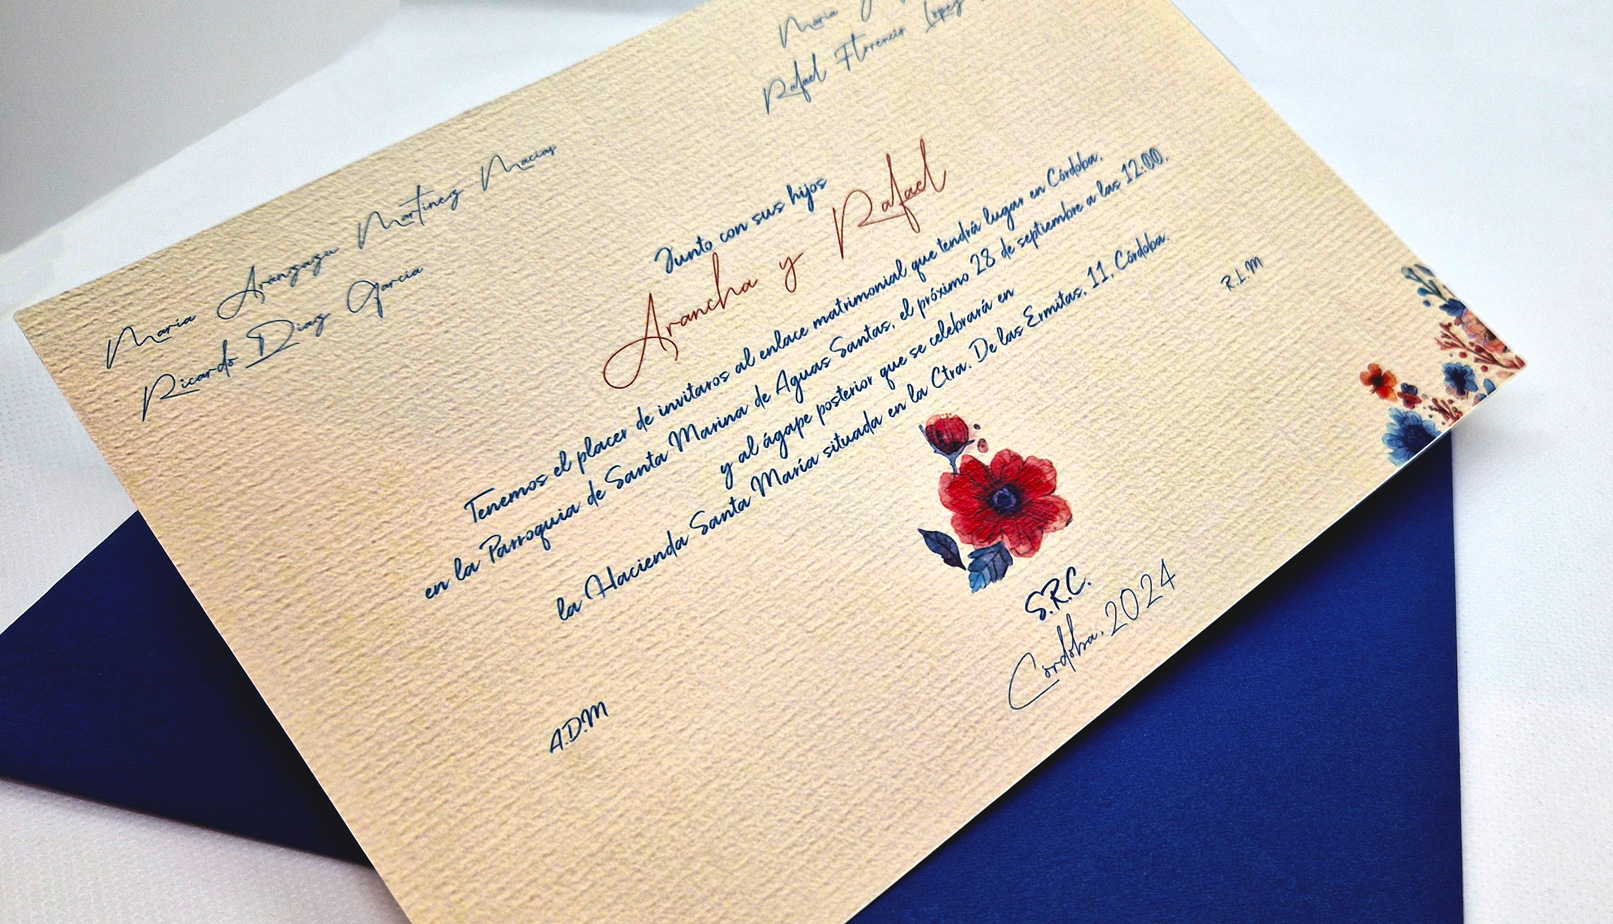 María Aránzazu Martínez Macías
Ricardo Díaz García
María
Rafael Florencio López
Junto con sus hijos
Arancha y Rafael
Tenemos el placer de invitaros al enlace matrimonial que tendrá lugar en Córdoba,
en la Parroquia de Santa Marina de Aguas Santas, el próximo 28 de septiembre a las 12:00,
y al ágape posterior que se celebrará en
la Hacienda Santa María situada en la Ctra. De las Ermitas, 11, Córdoba.
A.D.M
R.L.M
S.R.C.
Córdoba, 2024